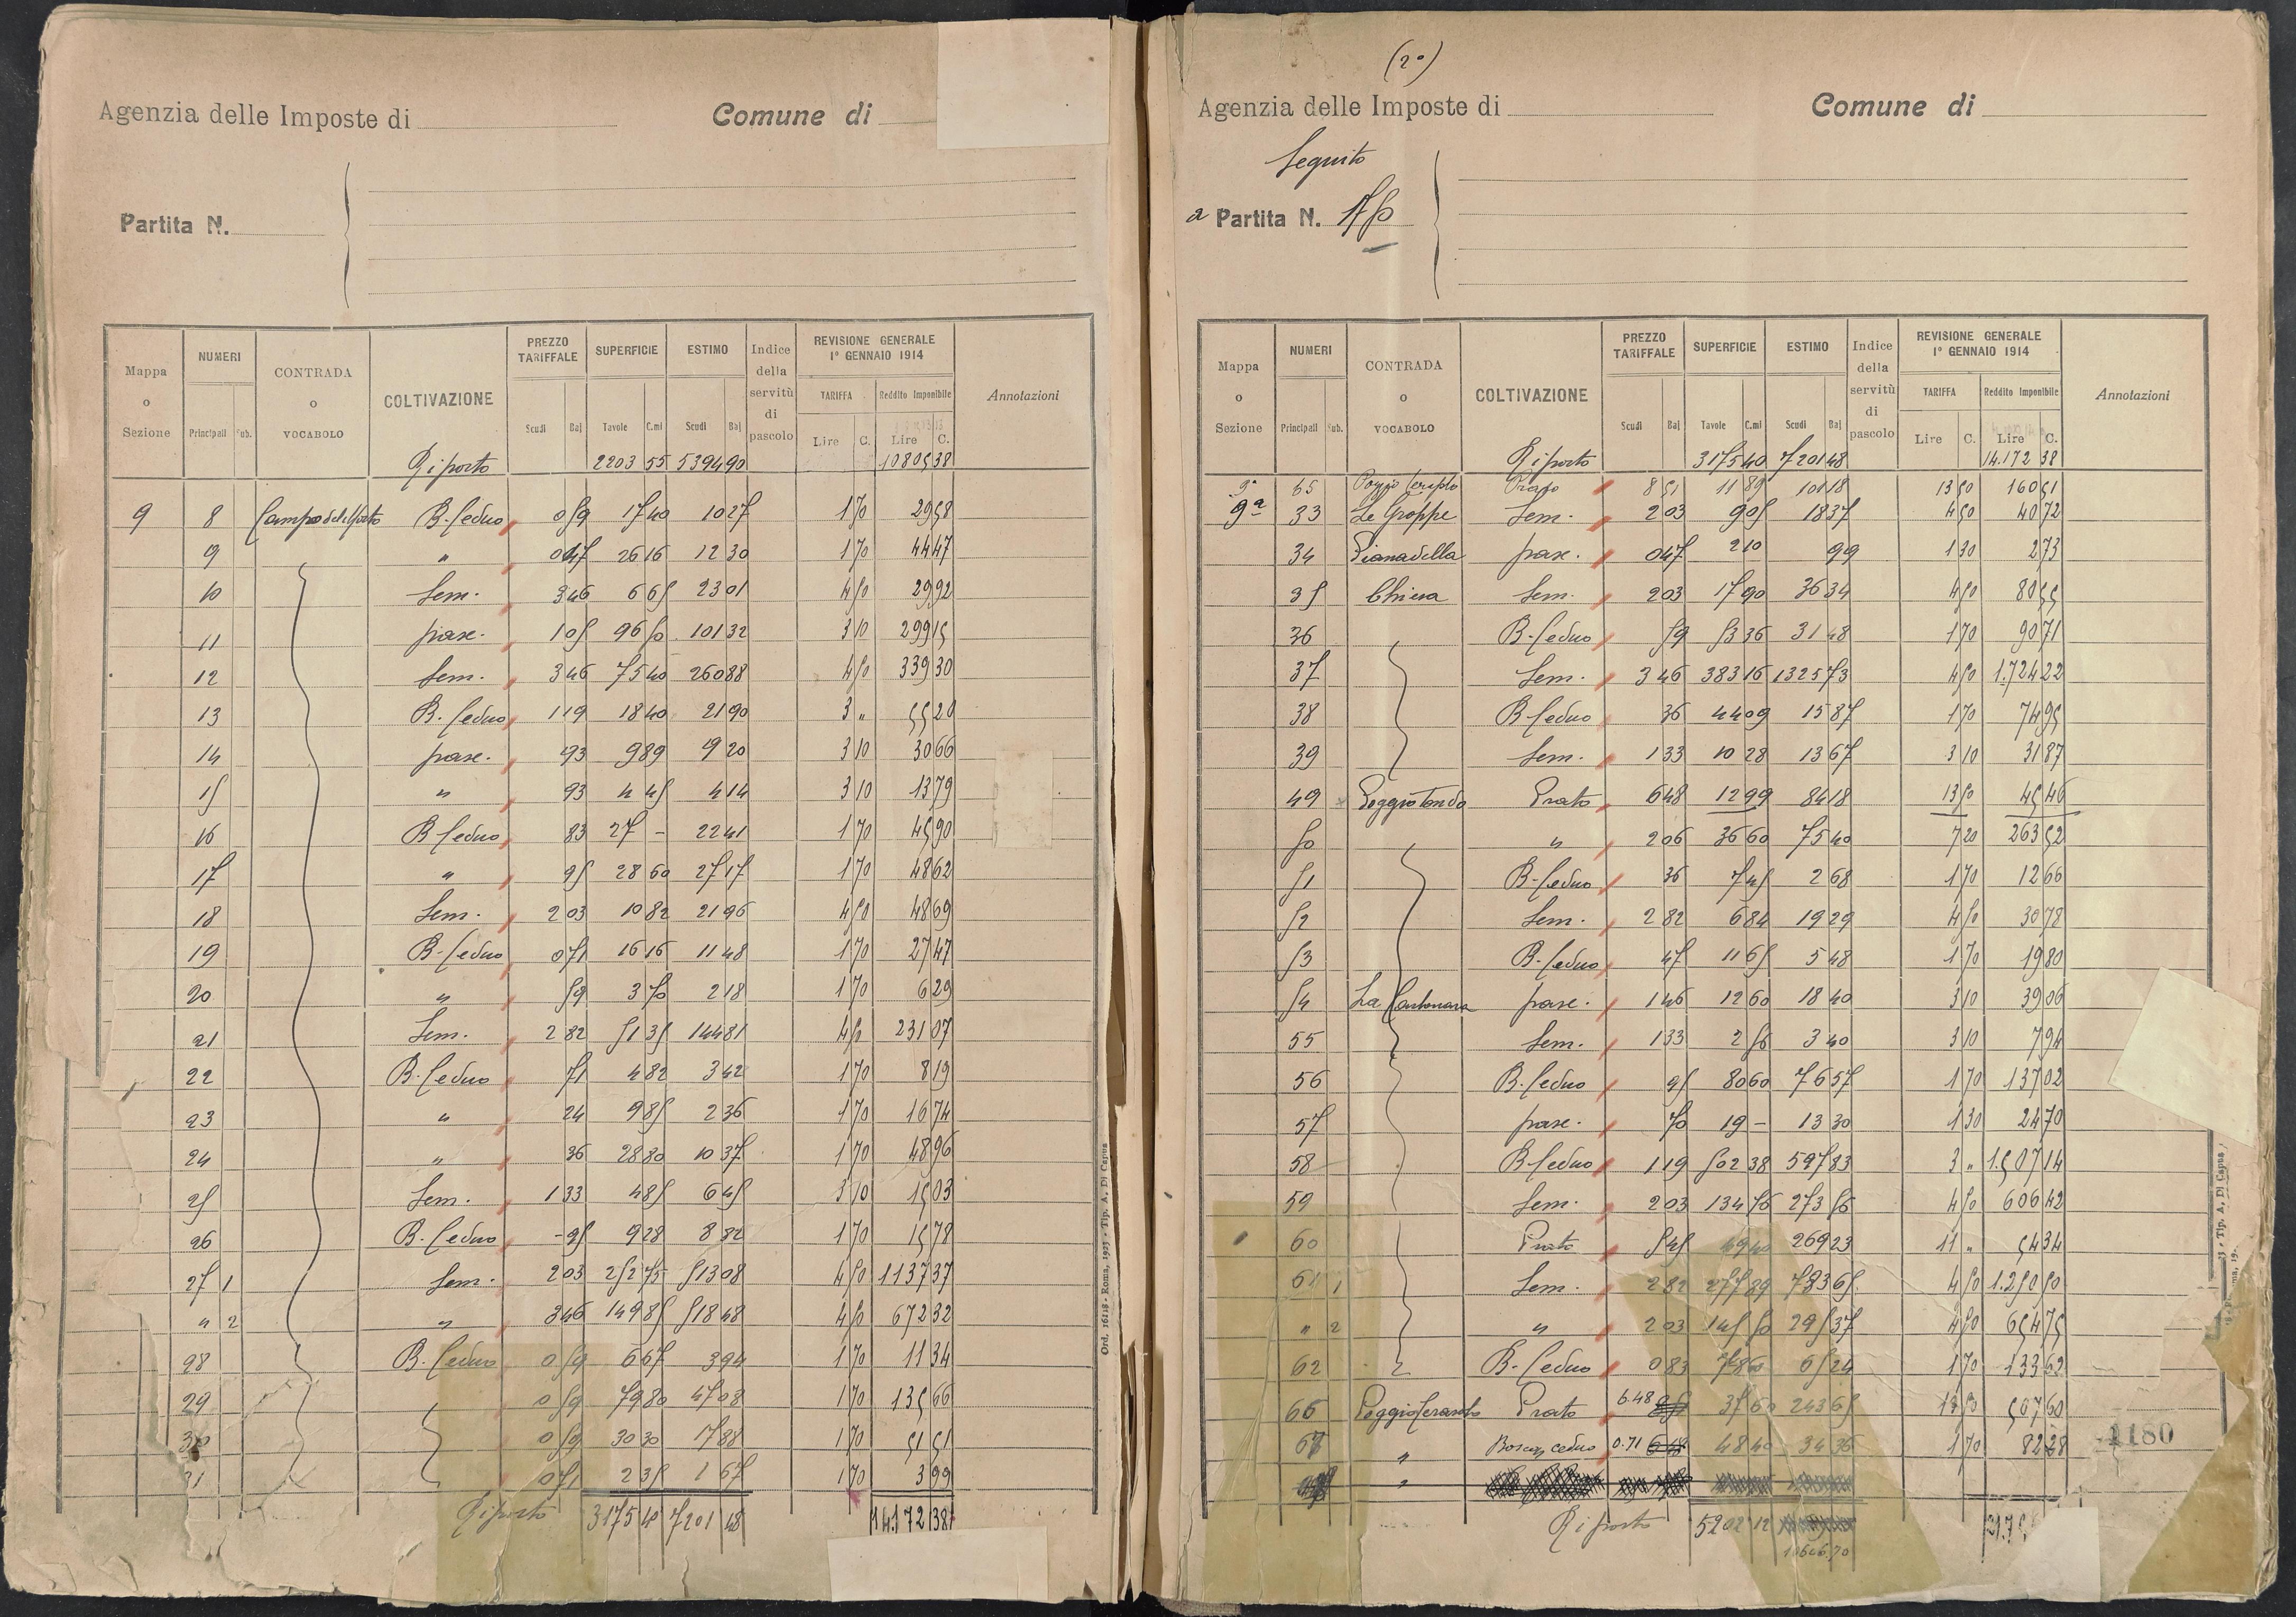 Agenzia delle Imposte di Comune di
Partita N.
Mappa o Sezione NUMERI CONTRADA o VOCABOLO COLTIVAZIONE PREZZO TARIFFALE SUPERFICIE ESTIMO Indice della servitù di pascolo REVISIONE GENERALE 1° GENNAIO 1914 Annotazioni
Principali Sub. Scudi Baj Tavole C.mi Scudi Baj TARIFFA Reddito Imponibile
Lire C. Lire C.
Riporto 2203 55 5394 90 10805 38
9 8 B. Ceduo 0 59 17 40 10 27 1 70 29 58
9 " 0 47 26 16 12 30 1 70 44 47
10 Sem. 3 46 6 65 23 01 4 50 29 92
11 pasc. 1 05 96 50 101 32 3 10 299 15
12 Sem. 3 46 75 40 260 88 4 50 339 30
13 B. Ceduo 1 19 18 40 21 90 3 " 55 20
14 pasc. 93 9 89 9 20 3 10 30 66
15 " 93 4 45 4 14 3 10 13 79
16 B. Ceduo 83 27 - 22 41 1 70 45 90
17 " 95 28 60 27 17 1 70 48 62
18 Sem. 2 03 10 82 21 96 4 50 48 69
19 B. Ceduo 0 71 16 16 11 48 1 70 27 47
20 " 59 3 70 2 18 1 70 6 29
21 Sem. 2 82 51 35 144 81 4 50 231 07
22 B. Ceduo 71 4 82 3 42 1 70 8 19
23 " 24 9 85 2 36 1 70 16 74
24 " 36 28 80 10 37 1 70 48 96
25 Sem. 1 33 4 85 6 45 3 10 15 03
26 B. Ceduo - 95 9 28 8 82 1 70 15 78
27 1 Sem. 2 03 252 75 513 08 4 50 1137 37
" 2 " 3 46 149 85 518 48 4 50 672 32
28 B. Ceduo 0 59 6 67 3 94 1 70 11 34
29 0 59 79 80 47 08 1 70 135 66
30 0 59 30 30 17 88 1 70 51 51
31 0 71 2 35 1 67 1 70 3 99
Riporto 3175 40 7201 48 14.172 38
Ord. 16118 - Roma, 1923 - Tip. A. Di Capua
(2°)
Agenzia delle Imposte di Comune di
Seguito
a Partita N. 175
Mappa o Sezione NUMERI CONTRADA o VOCABOLO COLTIVAZIONE PREZZO TARIFFALE SUPERFICIE ESTIMO Indice della servitù di pascolo REVISIONE GENERALE 1° GENNAIO 1914 Annotazioni
Principali Sub. Scudi Baj Tavole C.mi Scudi Baj TARIFFA Reddito Imponibile
Lire C. Lire C.
Riporto 3175 40 7201 48 14.172 38
9ª 65 Prato 8 51 11 89 101 18 13 50 160 51
9ª 33 Le Groppe Sem. 2 03 9 05 18 37 4 50 40 72
34 Piana della pasc. 0 47 2 10 99 1 30 2 73
35 Chiesa Sem. 2 03 17 90 36 34 4 50 80 55
36 B. Ceduo 59 53 36 31 48 1 70 90 71
37 Sem. 3 46 383 16 1325 73 4 50 1.724 22
38 B. Ceduo 36 44 09 15 87 1 70 74 95
39 Sem. 1 33 10 28 13 67 3 10 31 87
49 Poggio Tondo Prato 6 48 12 99 84 18 13 50 45 46
50 " 2 06 36 60 75 40 7 20 263 52
51 B. Ceduo 36 7 45 2 68 1 70 12 66
52 Sem. 2 82 6 84 19 29 4 50 30 78
53 B. Ceduo 47 11 65 5 48 1 70 19 80
54 La Carbonara pasc. 1 46 12 60 18 40 3 10 39 06
55 Sem. 1 33 2 56 3 40 3 10 7 94
56 B. Ceduo 95 80 60 76 57 1 70 137 02
57 pasc. 70 19 - 13 30 1 30 24 70
58 B. Ceduo 1 19 502 38 597 83 3 " 1.507 14
59 Sem. 2 03 134 76 273 56 4 50 606 42
60 Prato 5 45 49 40 269 23 11 " 543 4
61 1 Sem. 2 82 277 89 783 65 4 50 1.250 50
" 2 " 2 03 145 50 295 37 4 50 654 75
62 B. Ceduo 0 83 78 60 65 24 1 70 133 62
66 Prato 6.48 37 60 243 65 13 50 507 60
67 " Bosco ceduo 0.71 48 40 34 36 1 70 82 28
"
Riporto 5202 12
10606 70
1180
Tip. A. Di Capua